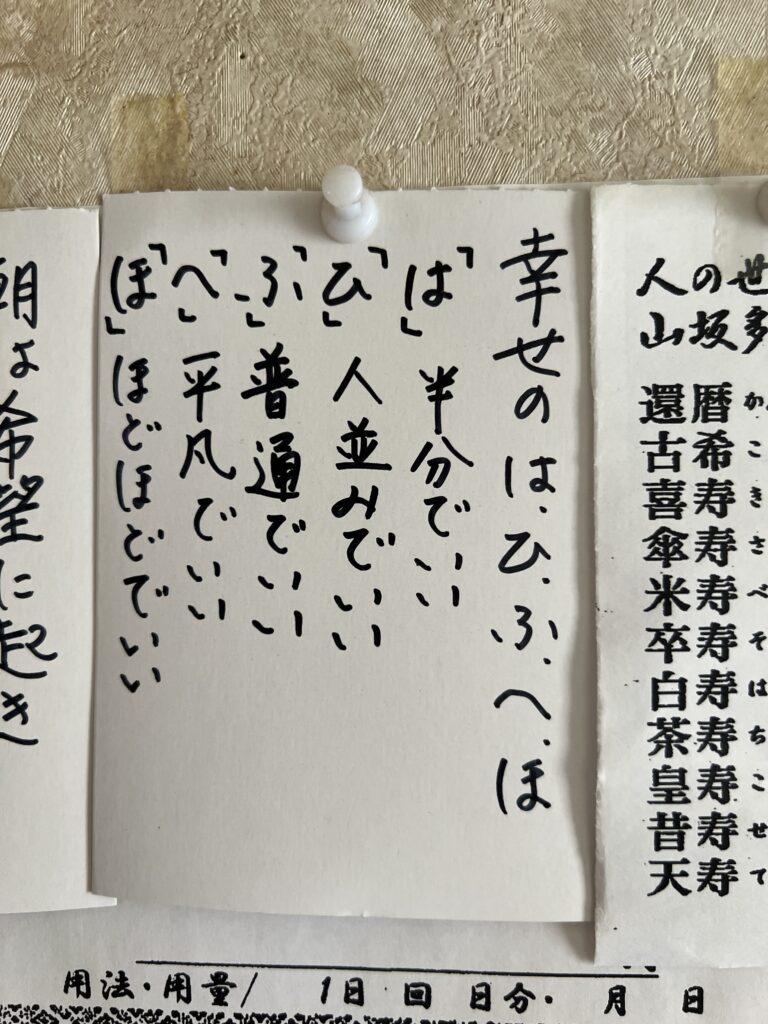 人の世
山坂多
還暦 か
古希 こ
喜寿 き
傘寿 さ
米寿 べ
卒寿 そ
白寿 は
茶寿 ち
皇寿 こ
昔寿 せ
天寿 て
幸せのは・ひ・ふ・へ・ほ
「は」半分でいい
「ひ」人並みでいい
「ふ」普通でいい
「へ」平凡でいい
「ほ」ほどほどでいい
朝は希望に起き
用法・用量/ 1日 回 日分・ 月 日